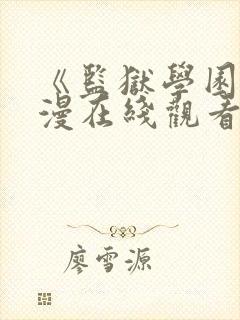 《監獄學園
漫在綫觀看
廖雪源